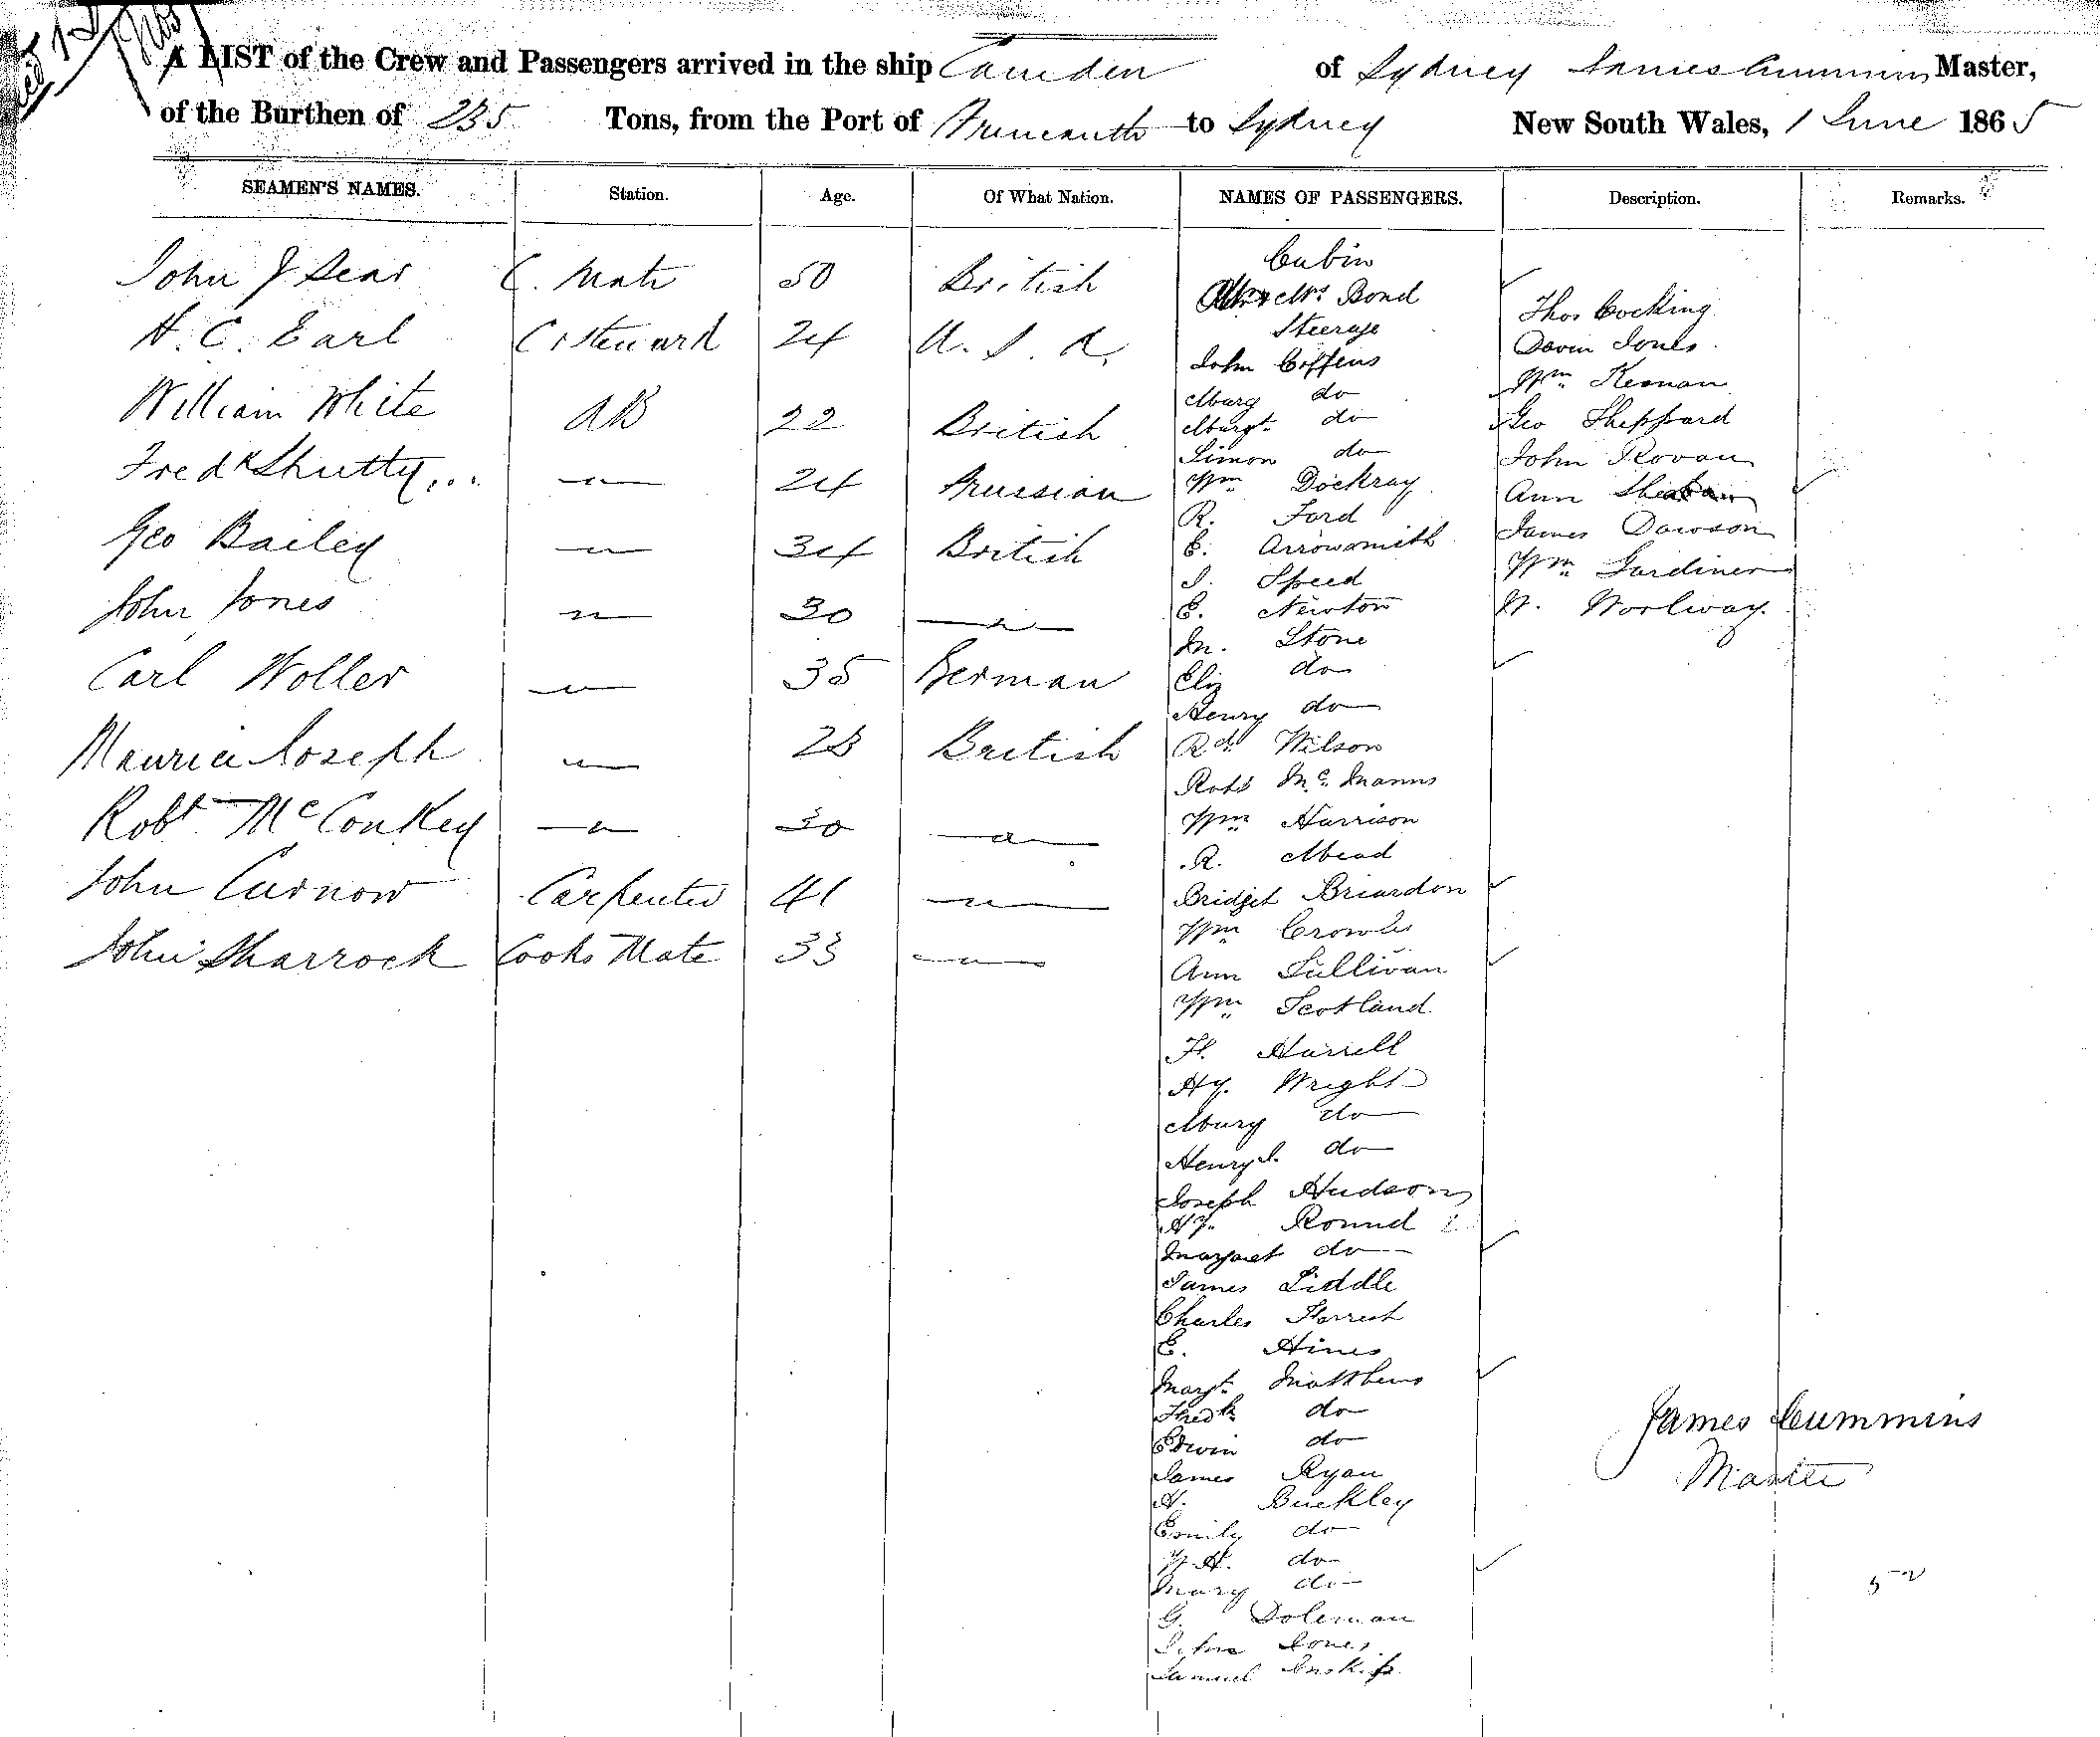 A LIST of the Crew and Passengers arrived in the ship Camden of Sydney James Cummins Master,
of the Burthen of 235 Tons, from the Port of to Sydney New South Wales, 1 June 1865
SEAMEN'S NAMES. Station. Age. Of What Nation. NAMES OF PASSENGERS. Description. Remarks.
John J Sear C. Mate 50 British
H. C. Earl C & Steward 24 U. S. A.
William White AB 22 British
Fredk Shutty — " — 24 Prussian
Geo Bailey — " — 34 British
John Jones — " — 30 — " —
Carl Woller — " — 35 German
Maurice Joseph — " — 23 British
Robt McConkey — " — 30 — " —
John Curnow Carpenter 41 — " —
John Sharrock Cooks Mate 33 — " —
Cabin
Mrs Bond
Steerage
John Giffens
Mary do
Margt do
Simon do
Wm Dockray
R. Ford
E. Arrowsmith
J. Speed
E. Newton
M. Stone
Eliz do
Henry do
Rd. Wilson
Robt McManns
Wm Harrison
R. Mead
Bridget Briardon
Wm Crowle
Ann Sullivan
Wm Scotland
H. Harrell
Hy. Wright
Mary do
Henry J. do
Joseph Hudson
Hy. Round
Margaret do
James Liddle
Charles Forrest
E. Hines
Margt. Matthews
Fredk do
Edwin do
James Ryan
H. Buckley
Emily do
W. H. do
Mary do
G. Doleman
John Jones
Samuel Inskip
Thos Cocking
David Jones
Wm Keenan
Geo Sheppard
John Rovan
Ann
James Dawson
Wm Gardiner
W. Worlway.
James Cummins
Master